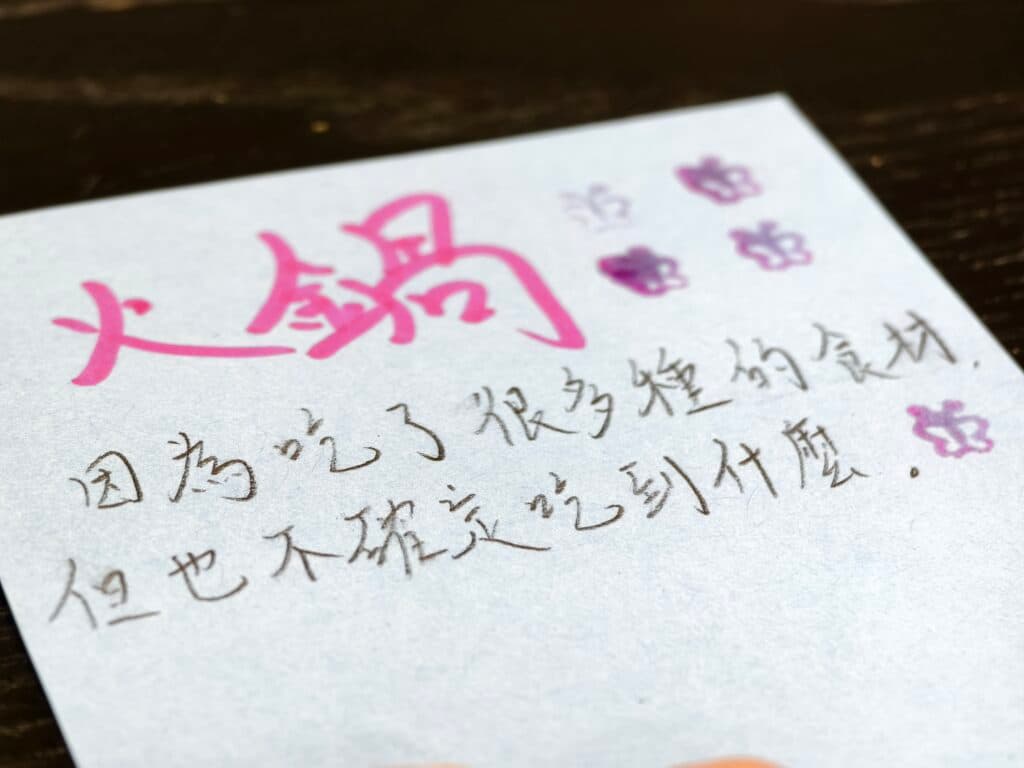 火鍋
因為吃了很多種的食材.
但也不確定吃到什麼.